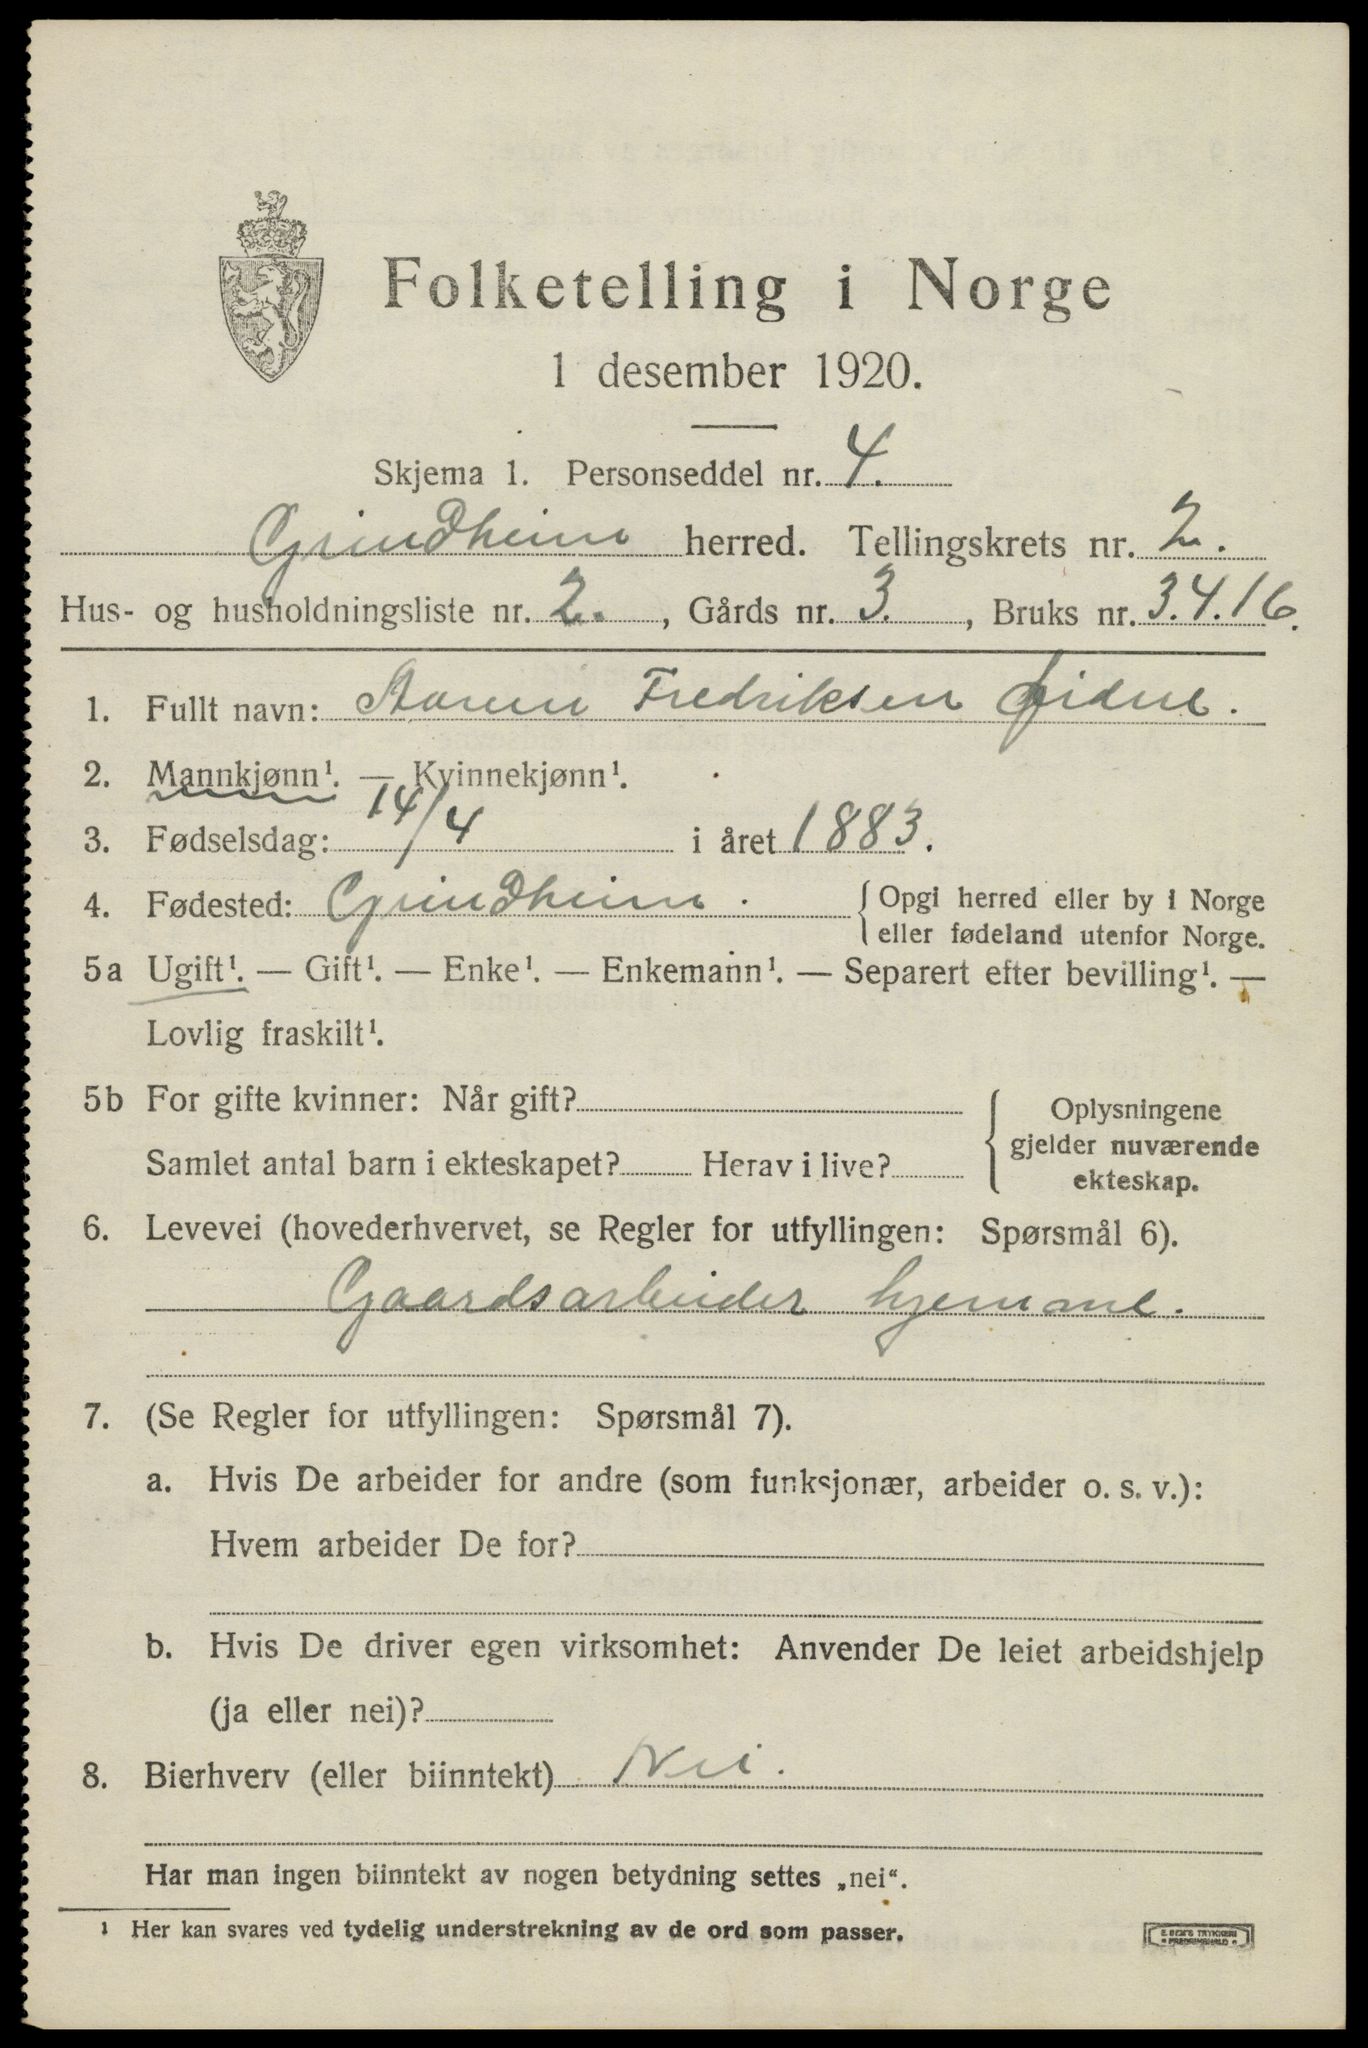 Folketelling i Norge
1 desember 1920.
Skjema 1. Personseddel nr. 4.
Grindheim herred. Tellingskrets nr. 2.
Hus- og husholdningsliste nr. 2., Gårds nr. 3., Bruks nr. 3.4.16.
1. Fullt navn: Fredriksen
2. Mannkjønn¹. — Kvinnekjønn¹.
3. Fødselsdag: 14/4 i året 1883.
4. Fødested: Grindheim. { Opgi herred eller by i Norge
eller fødeland utenfor Norge.
5a Ugift¹. — Gift¹. — Enke¹. — Enkemann¹. — Separert efter bevilling¹. —
Lovlig fraskilt¹.
5b For gifte kvinner: Når gift?
Samlet antal barn i ekteskapet? Herav i live?
{ Oplysningene
gjelder nuværende
ekteskap.
6. Levevei (hovederhvervet, se Regler for utfyllingen: Spørsmål 6).
Gaardsarbeider hjemme.
7. (Se Regler for utfyllingen: Spørsmål 7).
a. Hvis De arbeider for andre (som funksjonær, arbeider o. s. v.):
Hvem arbeider De for?
b. Hvis De driver egen virksomhet: Anvender De leiet arbeidshjelp
(ja eller nei)?
8. Bierhverv (eller biinntekt) Nei.
Har man ingen biinntekt av nogen betydning settes „nei“.
¹ Her kan svares ved tydelig understrekning av de ord som passer.